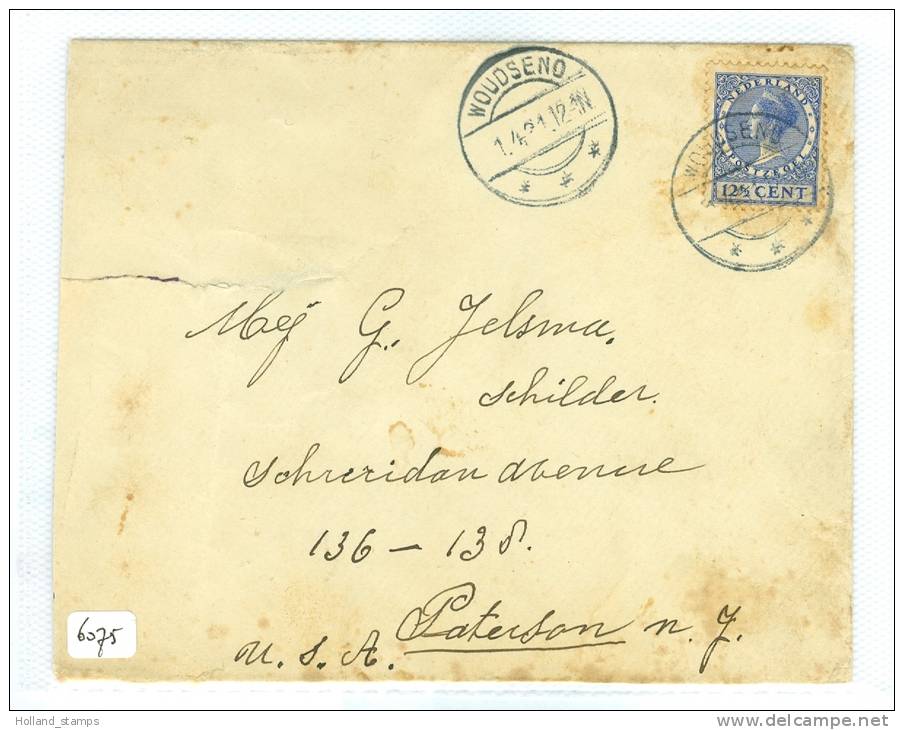 WOUDSEND
1.4.31.12-1N
NEDERLAND
POSTZEGEL
12½ CENT
WOUDSEND
Mej G. Jelsma.
Schilder.
Schreridan avenue
136 – 138.
Paterson n. J.
U. S. A.
6075
Holland_stamps
www.delcampe.net